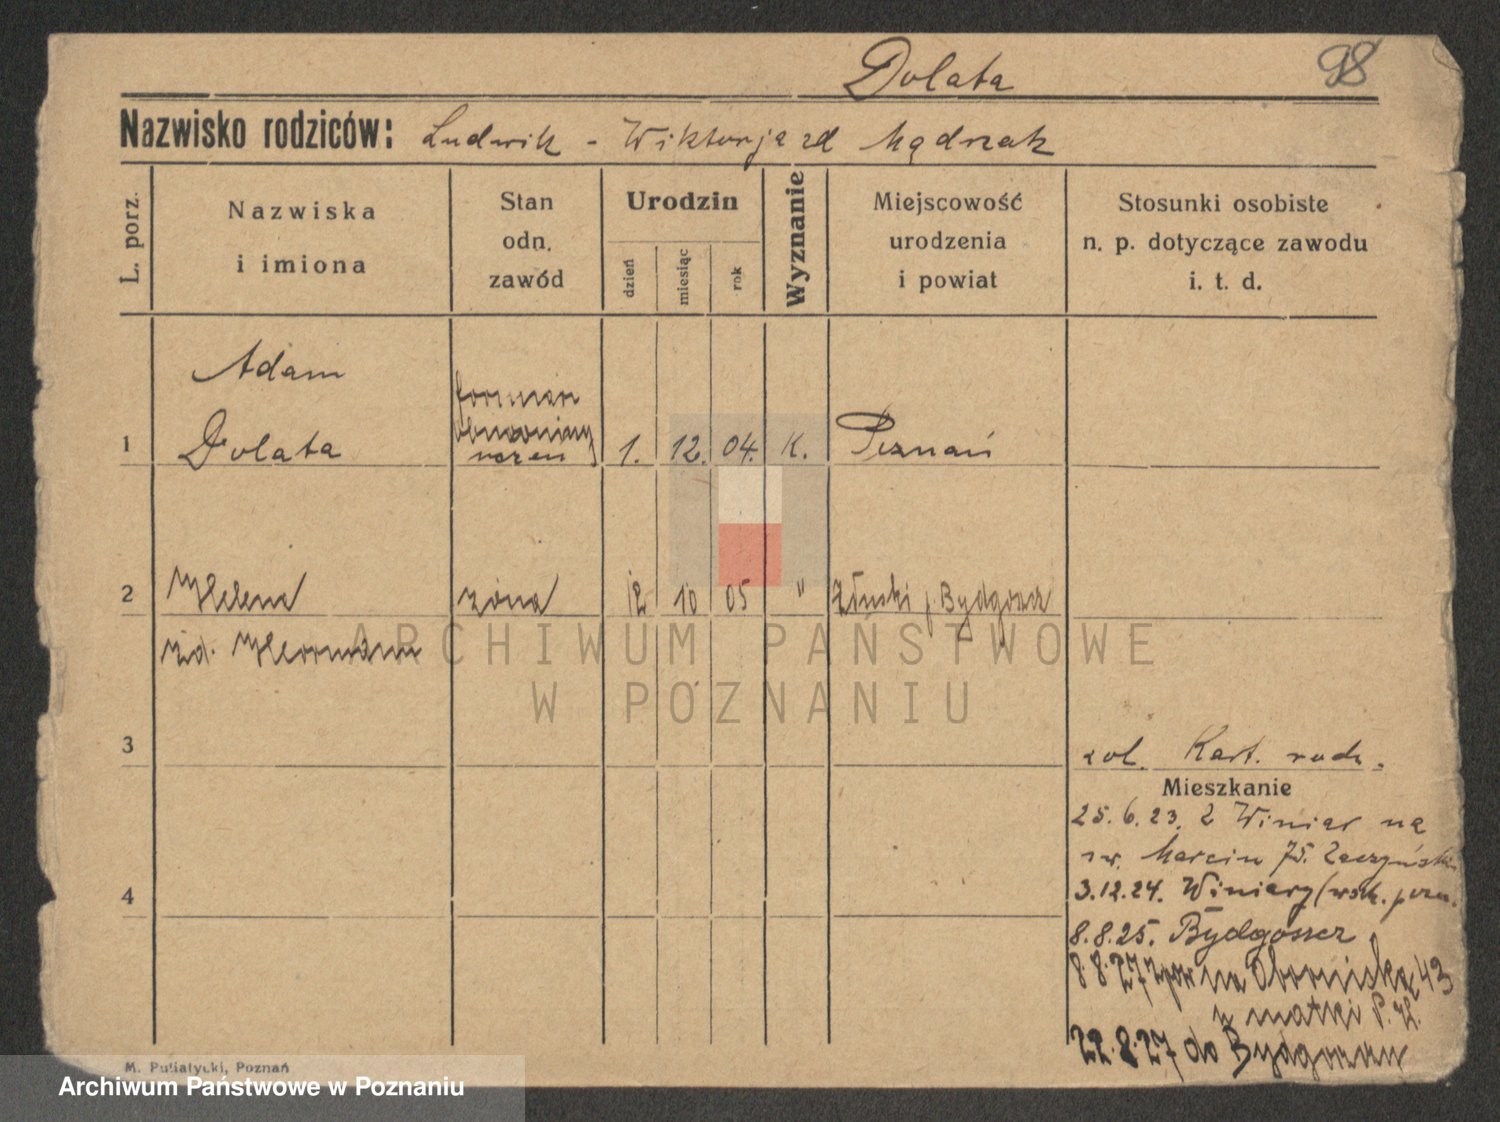 Dolata
98
Nazwisko rodziców: Ludwik - Wiktorja zd Mądrzak
L. porz.
Nazwiska
i imiona
Stan
odn.
zawód
Urodzin
dzień
miesiąc
rok
Wyznanie
Miejscowość
urodzenia
i powiat
Stosunki osobiste
n. p. dotyczące zawodu
i. t. d.
Adam
1 Dolata 1. 12. 04. K. Poznań
2 Helena żona 12 10 05 " p. Bydgoszcz
zd. Herrmann
ARCHIWUM PAŃSTWOWE
W POZNANIU
3
zob. Kart. rodz.
Mieszkanie
25. 6. 23. z Winiar na
św. Marcin 75.
3.12.24. Winiary
8.8.25. Bydgoszcz
8.8.27 na Obornicką 43
u matki
22.8.27 do Bydgoszczy
4
M. Putiatycki, Poznań
Archiwum Państwowe w Poznaniu